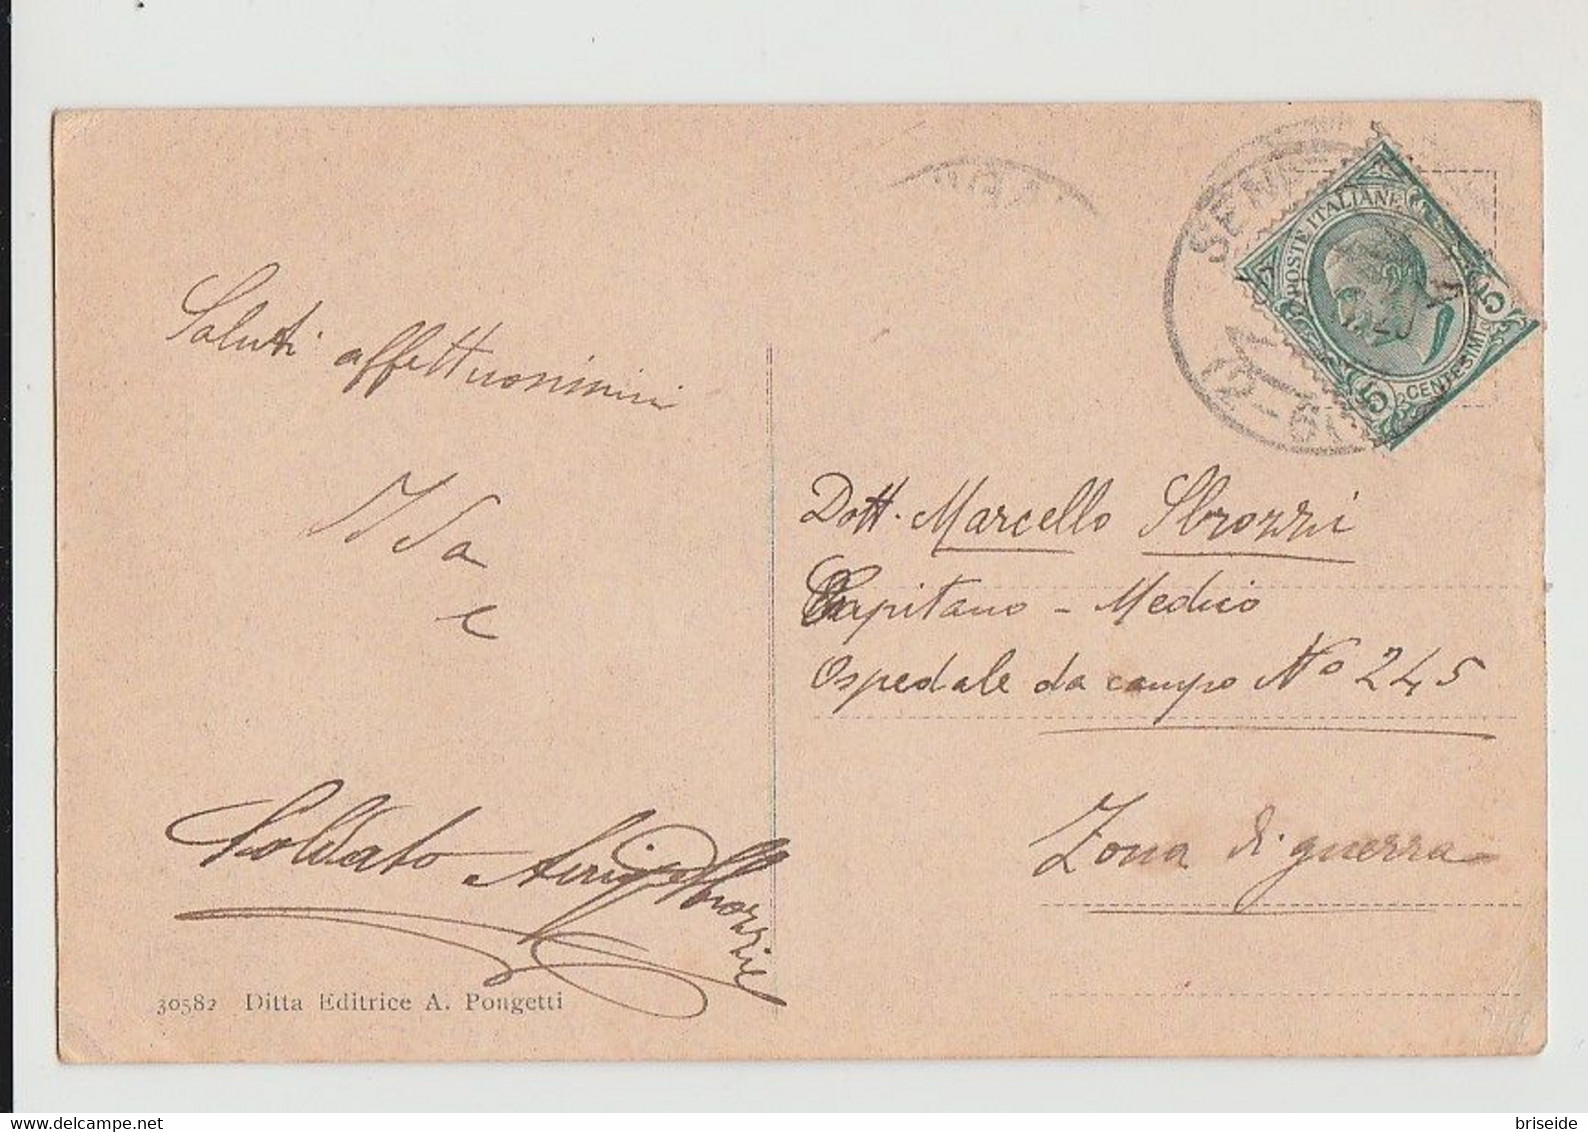 SEN
POSTE ITALIANE
CENTESIMI
5
5
Saluti affettuosissimi
Ida
e
Soldato Arrigo Sbrozzi
Dott. Marcello Sbrozzi
Capitano - Medico
Ospedale da campo No 245
Zona di guerra
30582 Ditta Editrice A. Pongetti
www.delcampe.net
briseide